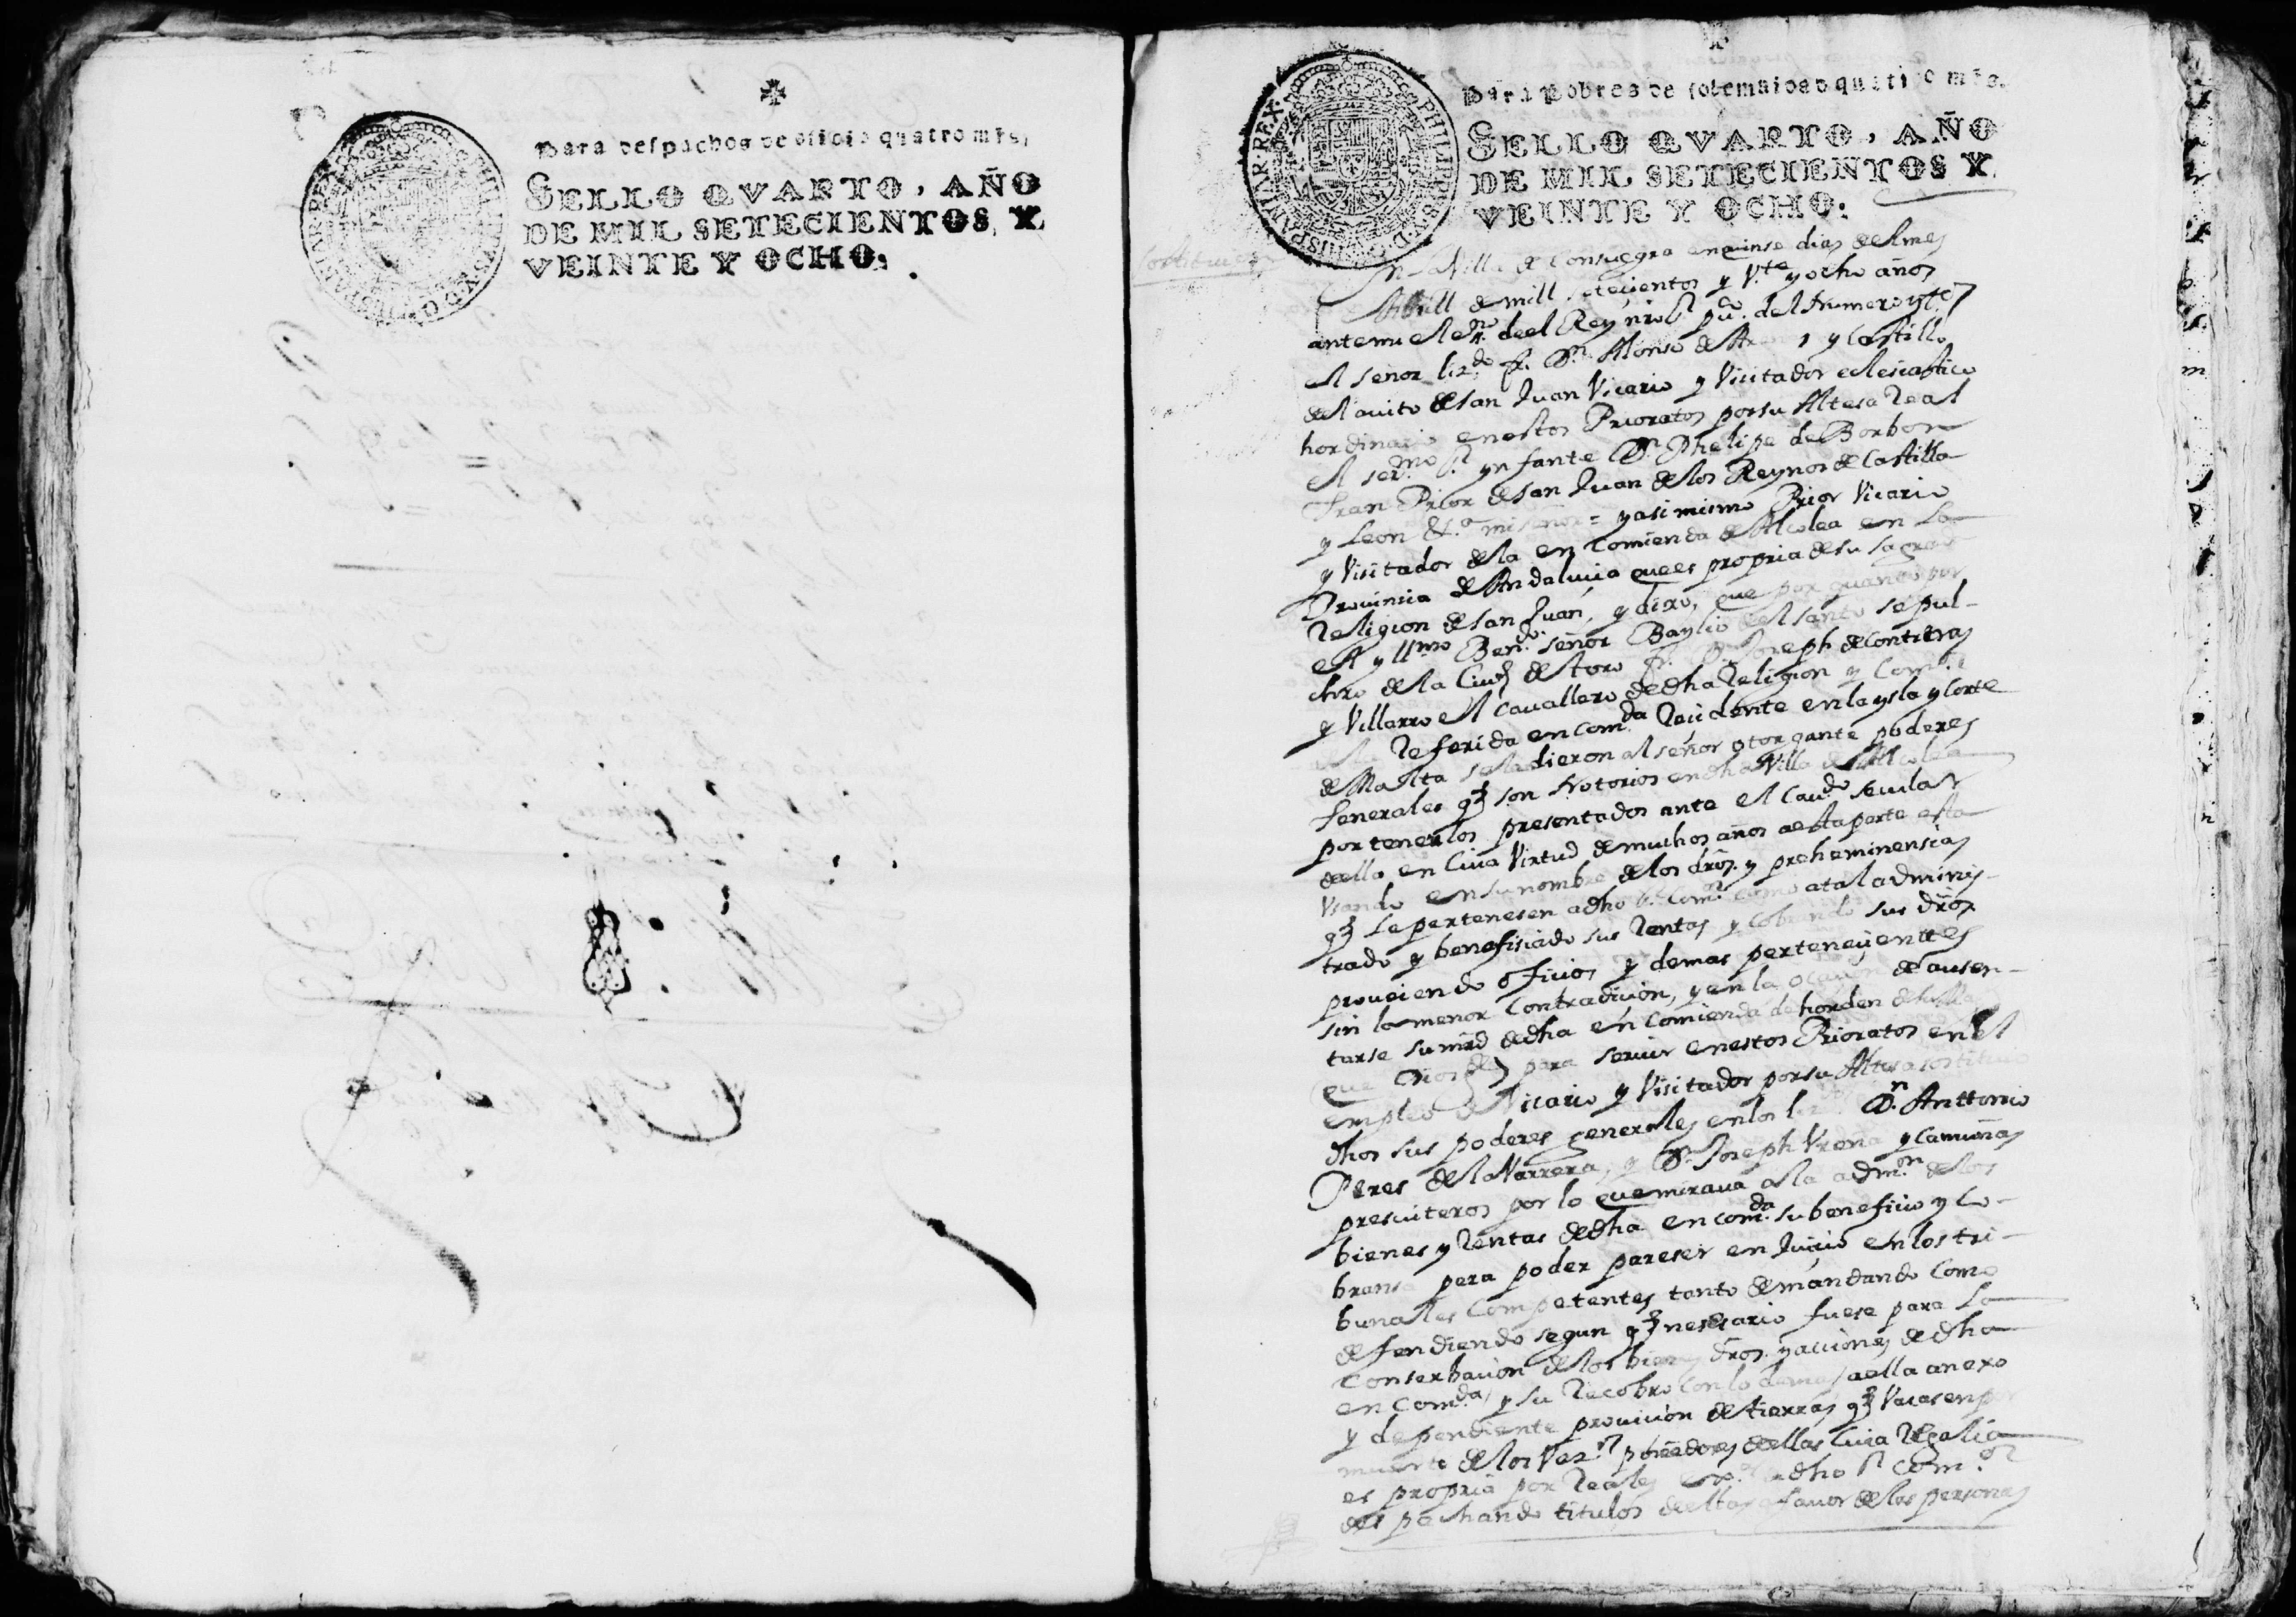 Para despachos de oficio quatro mrs,
SELLO QVARTO, AÑO
DE MIL SETECIENTOS, Y
VEINTE Y OCHO:
PHILIPPUS V D G HISPANIAR REX
Para Pobres de solemnidad quatro mrs.
SELLO QVARTO, AÑO
DE MIL SETECIENTOS Y
VEINTE Y OCHO:
PHILIPPUS V D G HISPANIAR REX
En la Villa de Consuegra en quinse dias del mes
Abrill de mill setecientos y Vte y ocho años
ante mi el esno. de el Rey nro Sr puco. del Numero y tgos
el señor lizdo fr. Dn. Alonso de y Castillo
del auito de san Juan Vicario y Visitador eclesiastico
hordinario en estos Prioratos por su Altesa Real
el sermo. Sr. ynfante Dn. Phelipe de Borbon
Gran Prior de san Juan de los Reynos de Castilla
y Leon &a. mi señor = y asimismo Prior Vicario
y Visitador de la encomienda de Alcolea en la
Provinsia de Andalucia que es propria de su sagrada
Religion de san Juan, y dixo, que por quanto por
el y llmo Bendo. señor Baylio del santo sepul-
chro de la Ciud de toro fr. Dn. Joseph de Contreras
y Villarroel Cauallero de dha Religion y Comor
de la Referida encomda Residente en la ysla y Corte
de Malta se le dieron al señor otorgante poderes
Generales qe son Notorios en dha Villa de Alcolea
por tenerlos presentados ante el Caudo secular
de ella en Cuia Virtud de muchos años a esta parte esta
Vsando en su nombre de los dros. y preheminensias
qe le pertenesen a dho Sr. Comor como a tal adminis-
trado y benefisiado sus Rentas y Cobrando sus dros
proueiendo ofisios y demas pertenecientes
sin la menor Contradicion, y en la ocasion de ausen-
tarse su mrd de dha encomienda de horden de su Alta
(que Dios gde) para seruir en estos Prioratos en el
empleo de Vicario y Visitador por su Altesa sostituio
dhos sus poderes generales en los lizdos Dn. Anttonio
Peres de la Narrera, y Dn. Joseph Vreña y Camuñas
presuiteros por lo que miraua a la admon de los
bienes y Rentas de dha encomda. su benefisio y Co-
bransa para poder pareser en Juicio en los tri-
bunales Competentes tanto demandando Como
defendiendo segun qe nesesario fuese para la
Conserbacion de los bienes dros. y acciones de dha
encomda, y su Recobro con lo demas a ella anexo
y dependiente prouicion de tierras qe Vacasen por
muerte de los Vezos poseedores de ellas Cuia Regalia
es propria por Reales a dho Sr Comor
despachando titulos de ellas a fauor de las personas